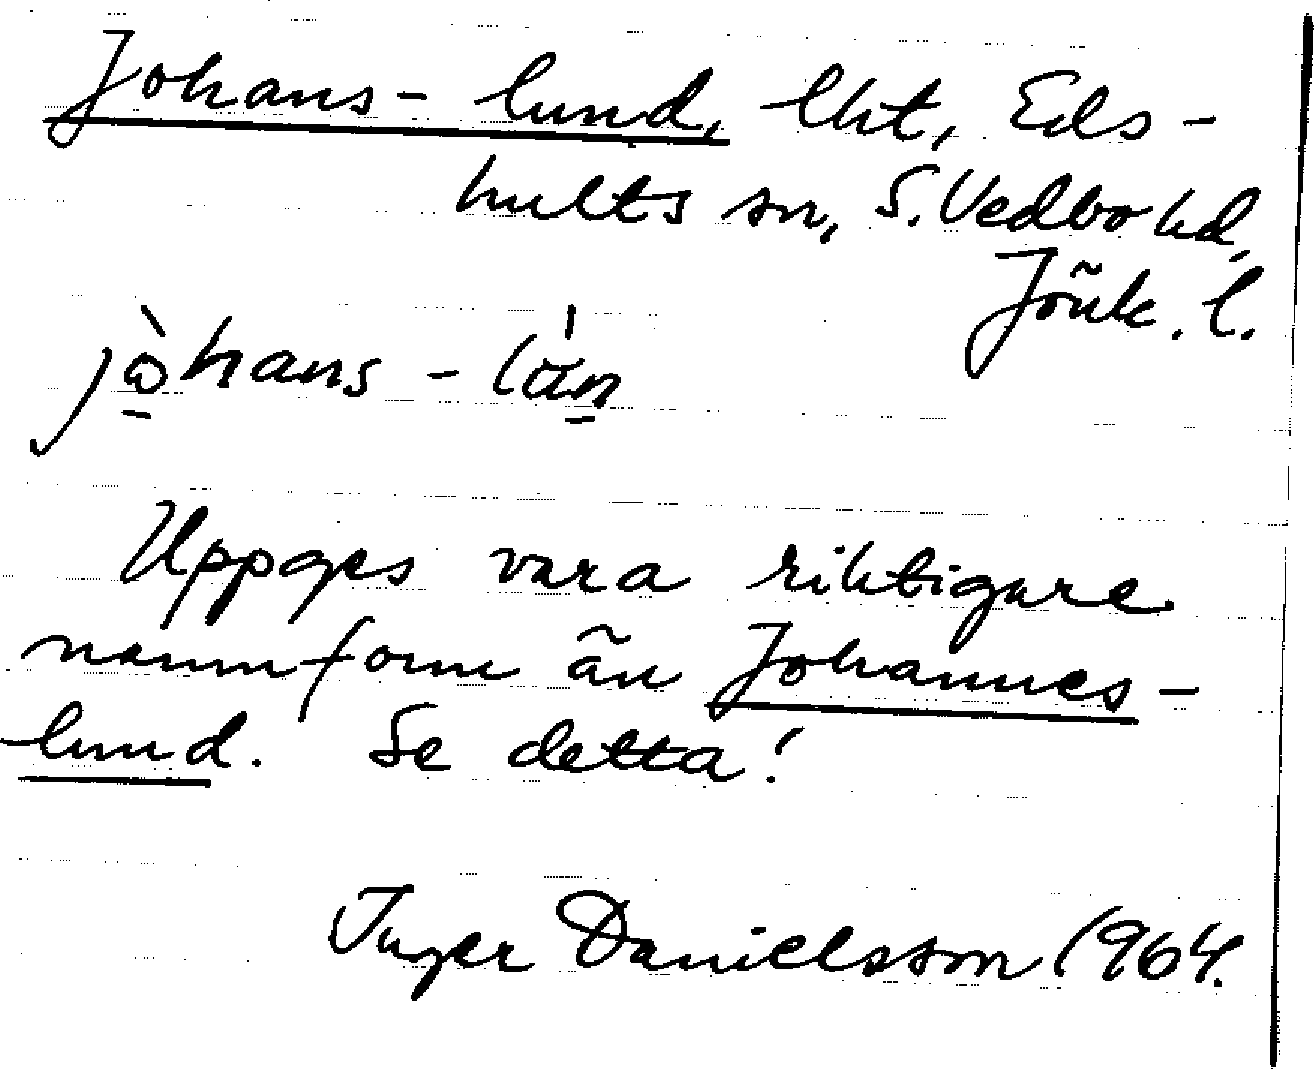 Johans-lund, lht, Eds-
hults sn, S. Vedbo hd,
Jönk. l.
Uppges vara riktigare
namnform än Johannes-
lund. Se detta!
Inger Danielsson 1964.